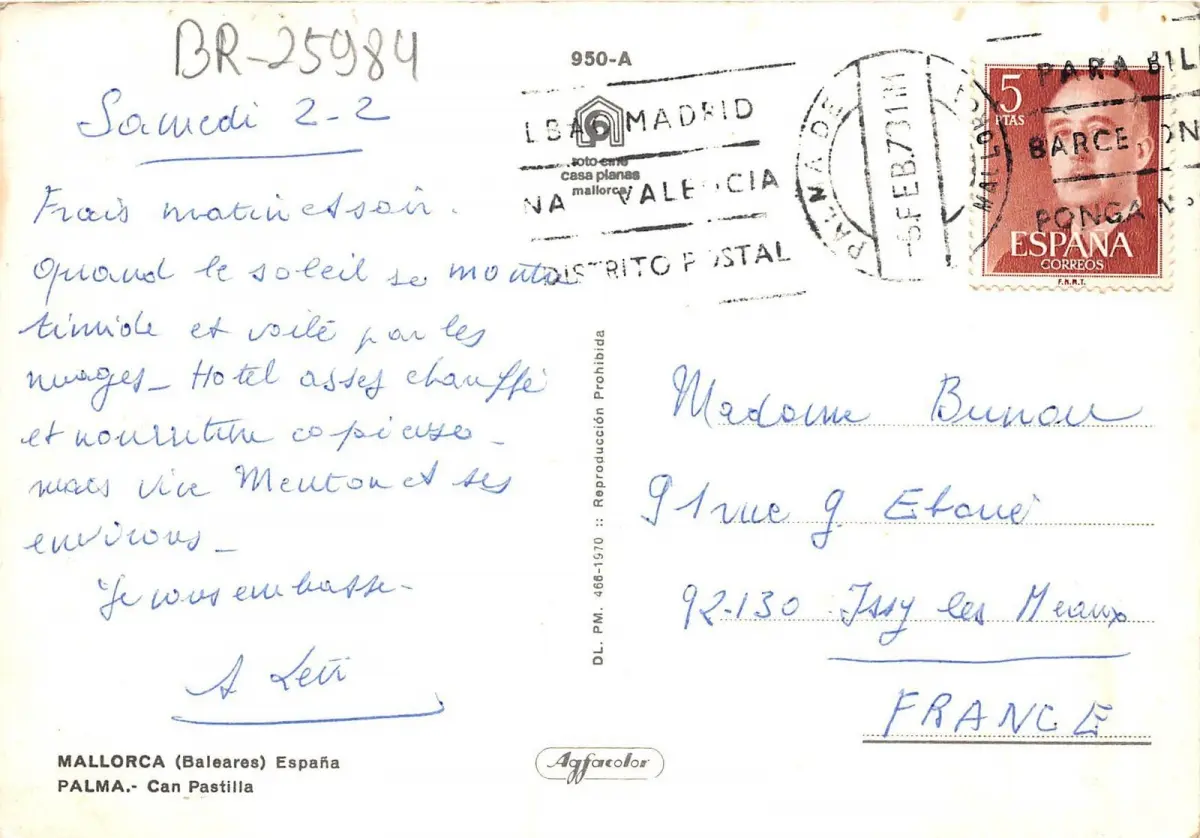 BR-25984
950-A
Samedi 2-2
Frais matin et soir.
Quand le soleil se montre
timide et voilé par les
nuages - Hotel assez chauffé
et nourriture copieuse -
mais vive Menton et ses
environs -
Je vous embrasse -
A
MALLORCA (Baleares) España
PALMA.- Can Pastilla
foto-cine
casa planas
mallorca
LBAO MADRID
NA VALENCIA
DISTRITO POSTAL
PALMA DE MALLORCA
-6 FEB. 73
PARA BIL
BARCELON
PONGA Nº
5
PTAS
ESPAÑA
CORREOS
F.N.M.T.
DL. PM. 466-1970 :: Reproducción Prohibida
Agfacolor
Madame Bunou
91 rue g. Eboué
92-130 Issy les Meaux
FRANCE